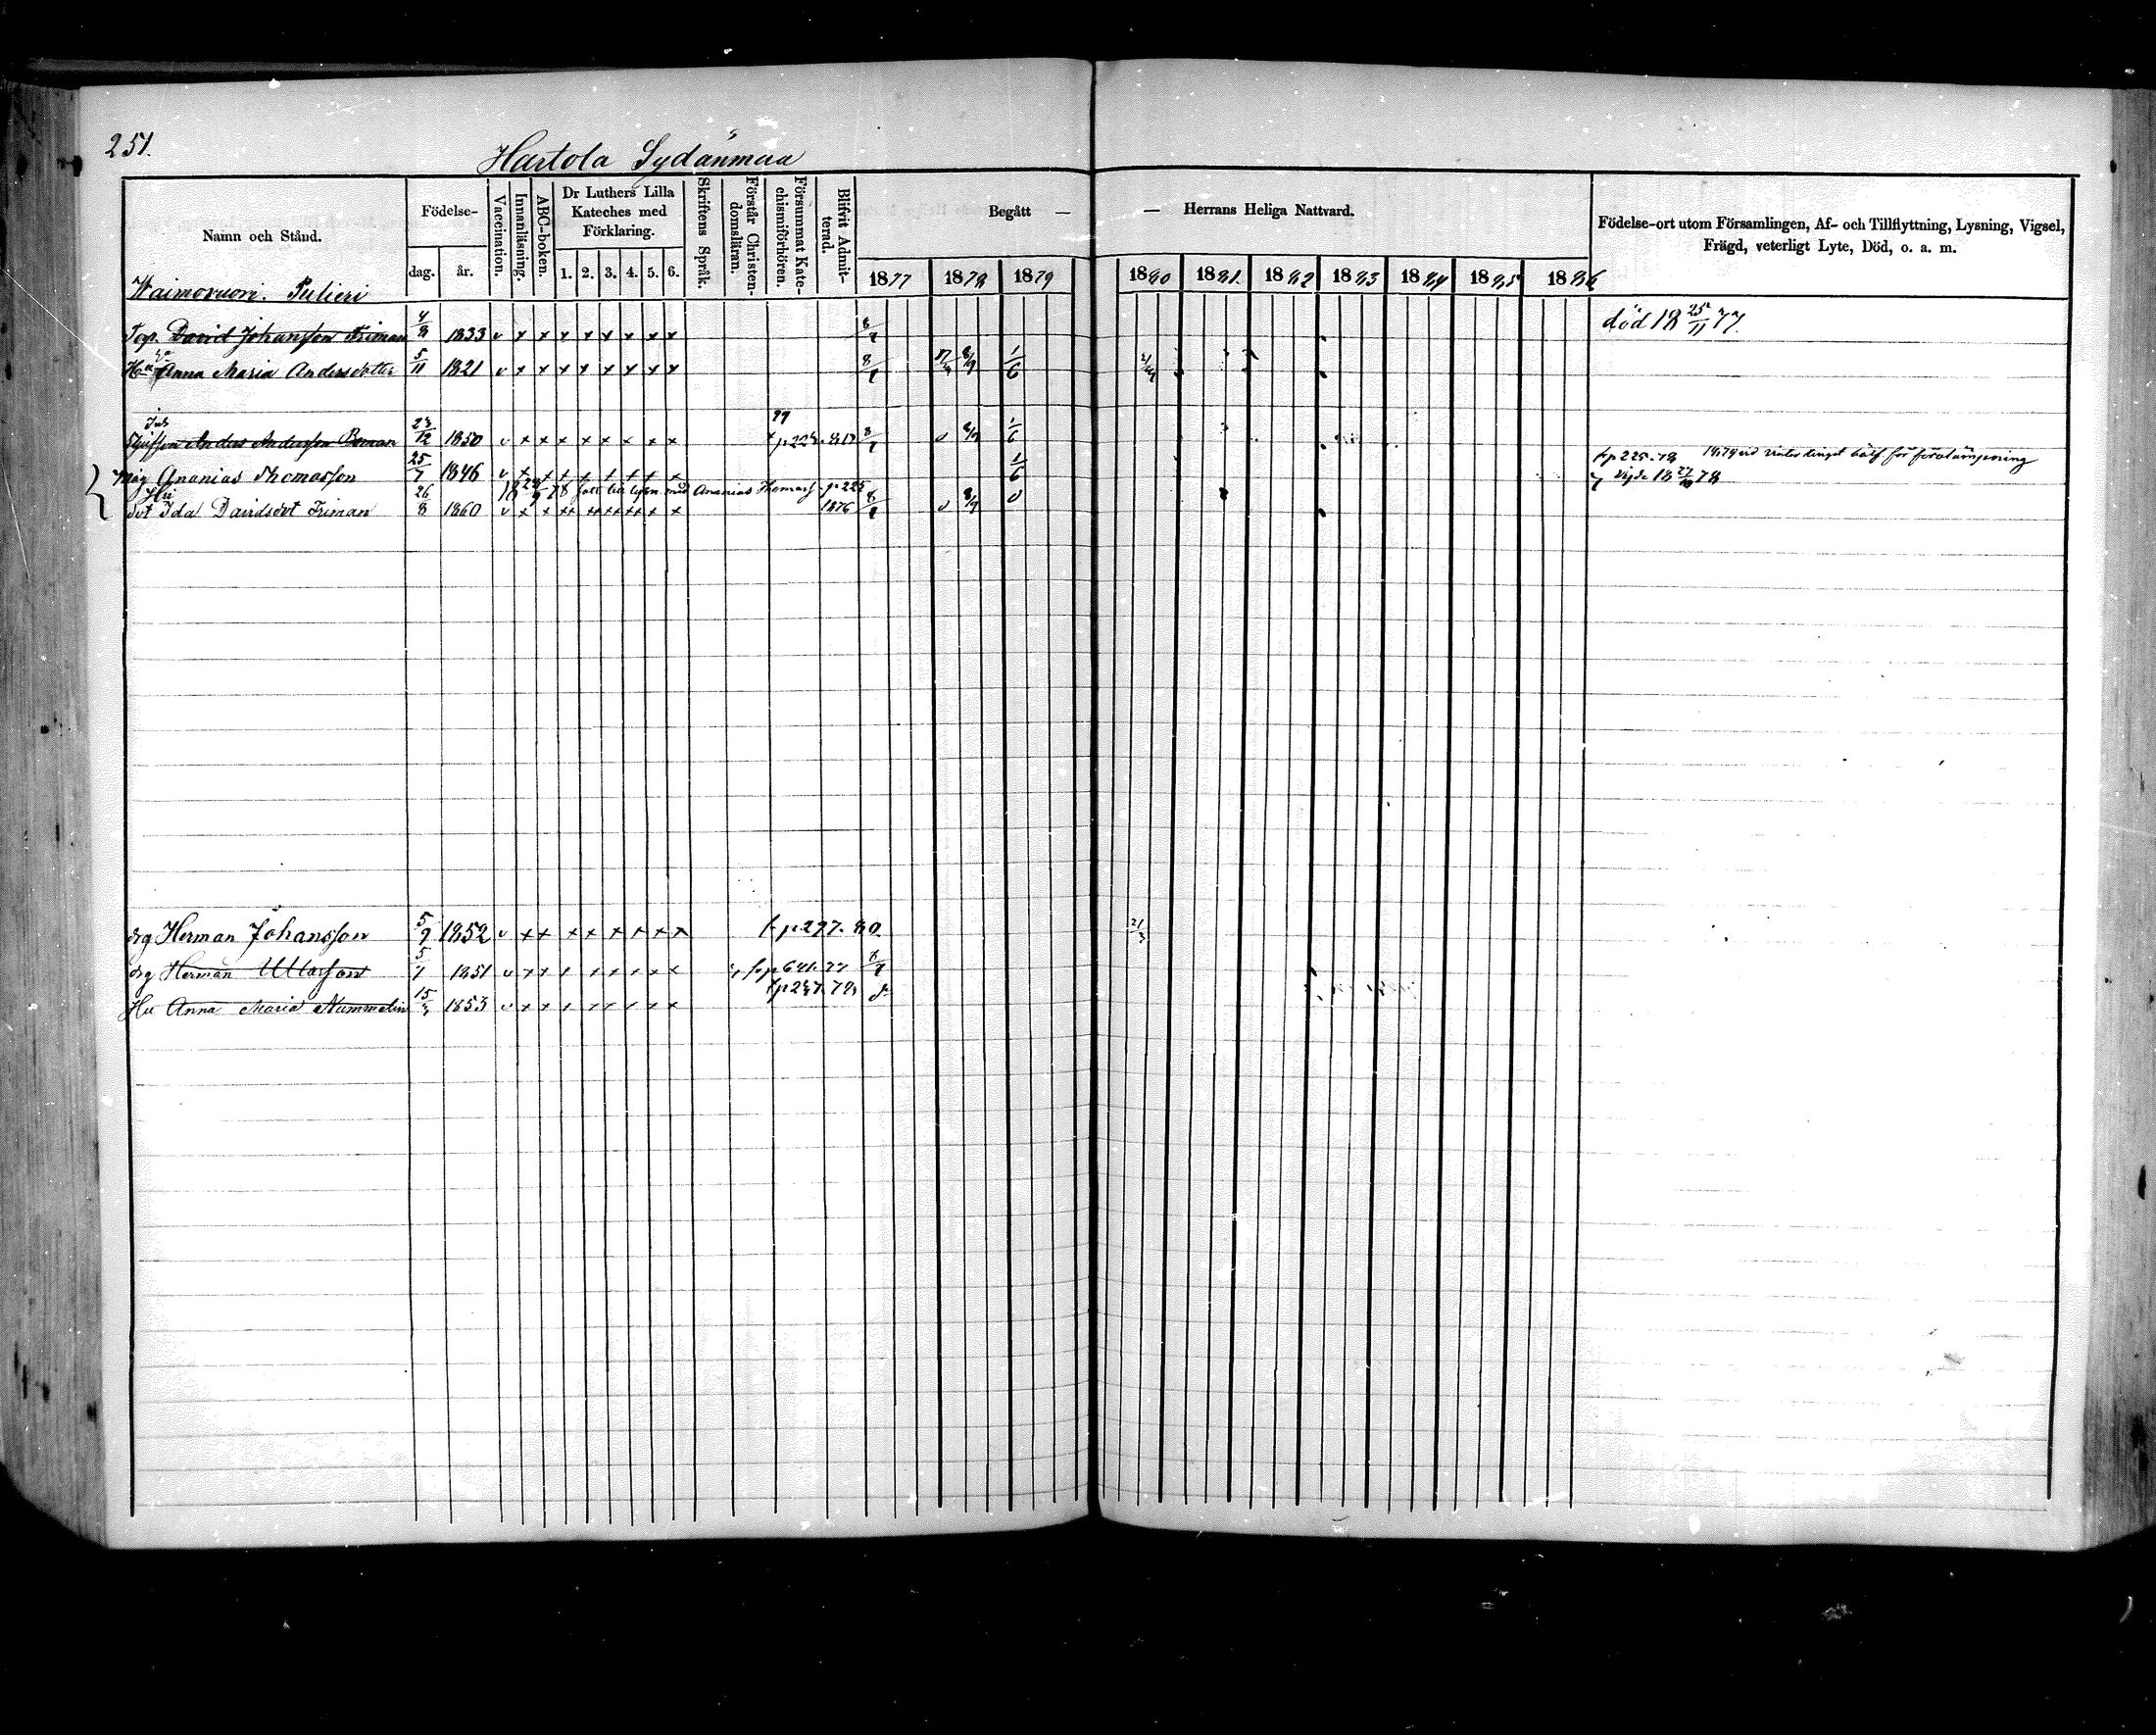 251.
Hartola Sydänmaa
Namn och Stånd.
Födelse-
dag.
år.
Vaccination.
Innanläsning.
ABC-boken.
Dr Luthers Lilla
Kateches med
Förklaring.
1. 2. 3. 4. 5. 6.
Skriftens Språk.
Förstår Christen-
domsläran.
Försummat Kate-
chismiförhören.
Blifvit Admit-
terad.
Begått —
— Herrans Heliga Nattvard.
1877 1878 1879 1880 1881. 1882 1883 1884 1885 1886
Födelse-ort utom Församlingen, Af- och Tillflyttning, Lysning, Vigsel,
Frägd, veterligt Lyte, Död, o. a. m.
Waimovuori. Pulieri
David Johansson Friman 4/8 1833 v x x x x x x x x 8/7 död 18 25/11 77.
Anna Maria Andersdotter 5/11 1821 v x x x x x x x x 8/7 8/9 1/6
Anders Andersson 1850 v x x x x x x x x 1/6
Måg Ananias Thomasson 25/7 1846 v x x x x x x x x 1/6 p 225. 78
vigde 18 27/10 78
18 78 tatt till lysn med Ananias Thomass p 225
Hu
dot Ida Davidsdot Friman 26/8 1860 v x x xx xx xx xx x x 1876
drg Herman Johansson 5/9 1852 v x x x x x x x x p 277. 80. 21/3
drg Herman 5/7 1851 v x x x x x x x x
Hu Anna Maria Nummelin 15/5 1853 v x x x x x x x x